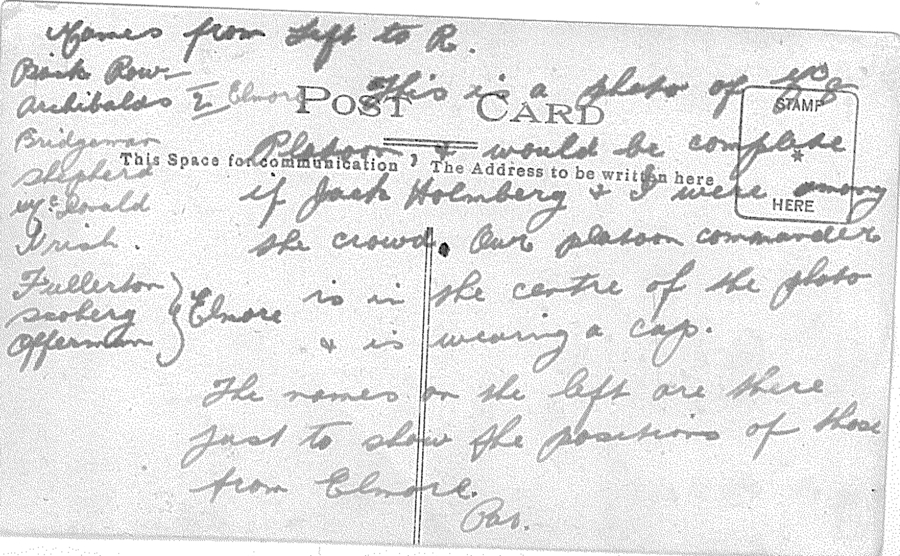 Names from Left to R.
Back Row
Archibalds 2 Elmore
Bridgeman
Shepherd
McDonald
Irish.
Fullerton
Seaberg
Offerman
Elmore
POST CARD
This Space for communication
The Address to be written here
STAMP
*
HERE
This is a photo of
Platoon, & would be complete
if Jack Holmberg & I were among
the crowd. Our platoon commander
is in the centre of the photo
& is wearing a cap.
The names on the left are there
just to show the positions of those
from Elmore.